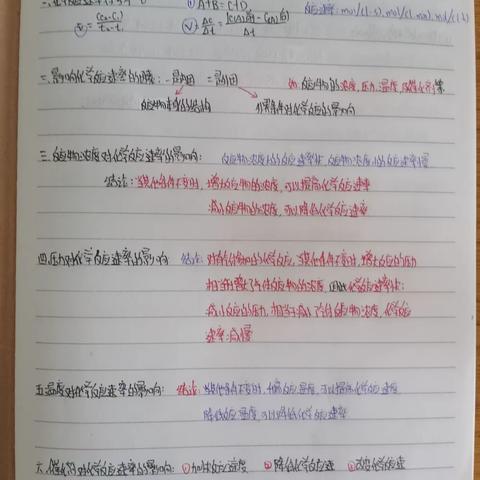 A+B=C+D
二.影响化学反应速率的因素: 一.内因 二.外因 如 反应物的浓度,压力,温度,催化剂等
反应物本身的结构 外界条件对化学反应的影响
三.反应物浓度对化学反应速率的影响: 反应物浓度大的反应速率快,反应物浓度小的反应速率慢
结论:当其他条件不变时,增大反应物的浓度,可以提高化学反应速率
减小反应物的浓度,可以降低化学反应速率
四.压力对化学反应速率的影响 结论:对有气体参加的化学反应,当其他条件不变时,增大反应的压力
相当于增大了气体反应物的浓度,因此化学反应速率快:
减小反应的压力,相当于减小了气体反应物浓度,化学反应
速率减慢
五.温度对化学反应速率的影响: 结论:当其他条件不变时,升高反应温度,可以提高化学反应速度
降低反应温度,可以降低化学反应速率
六.催化剂对化学反应速率的影响: ①加快反应速度 ②降低化学反应速 ③改变化学反应速